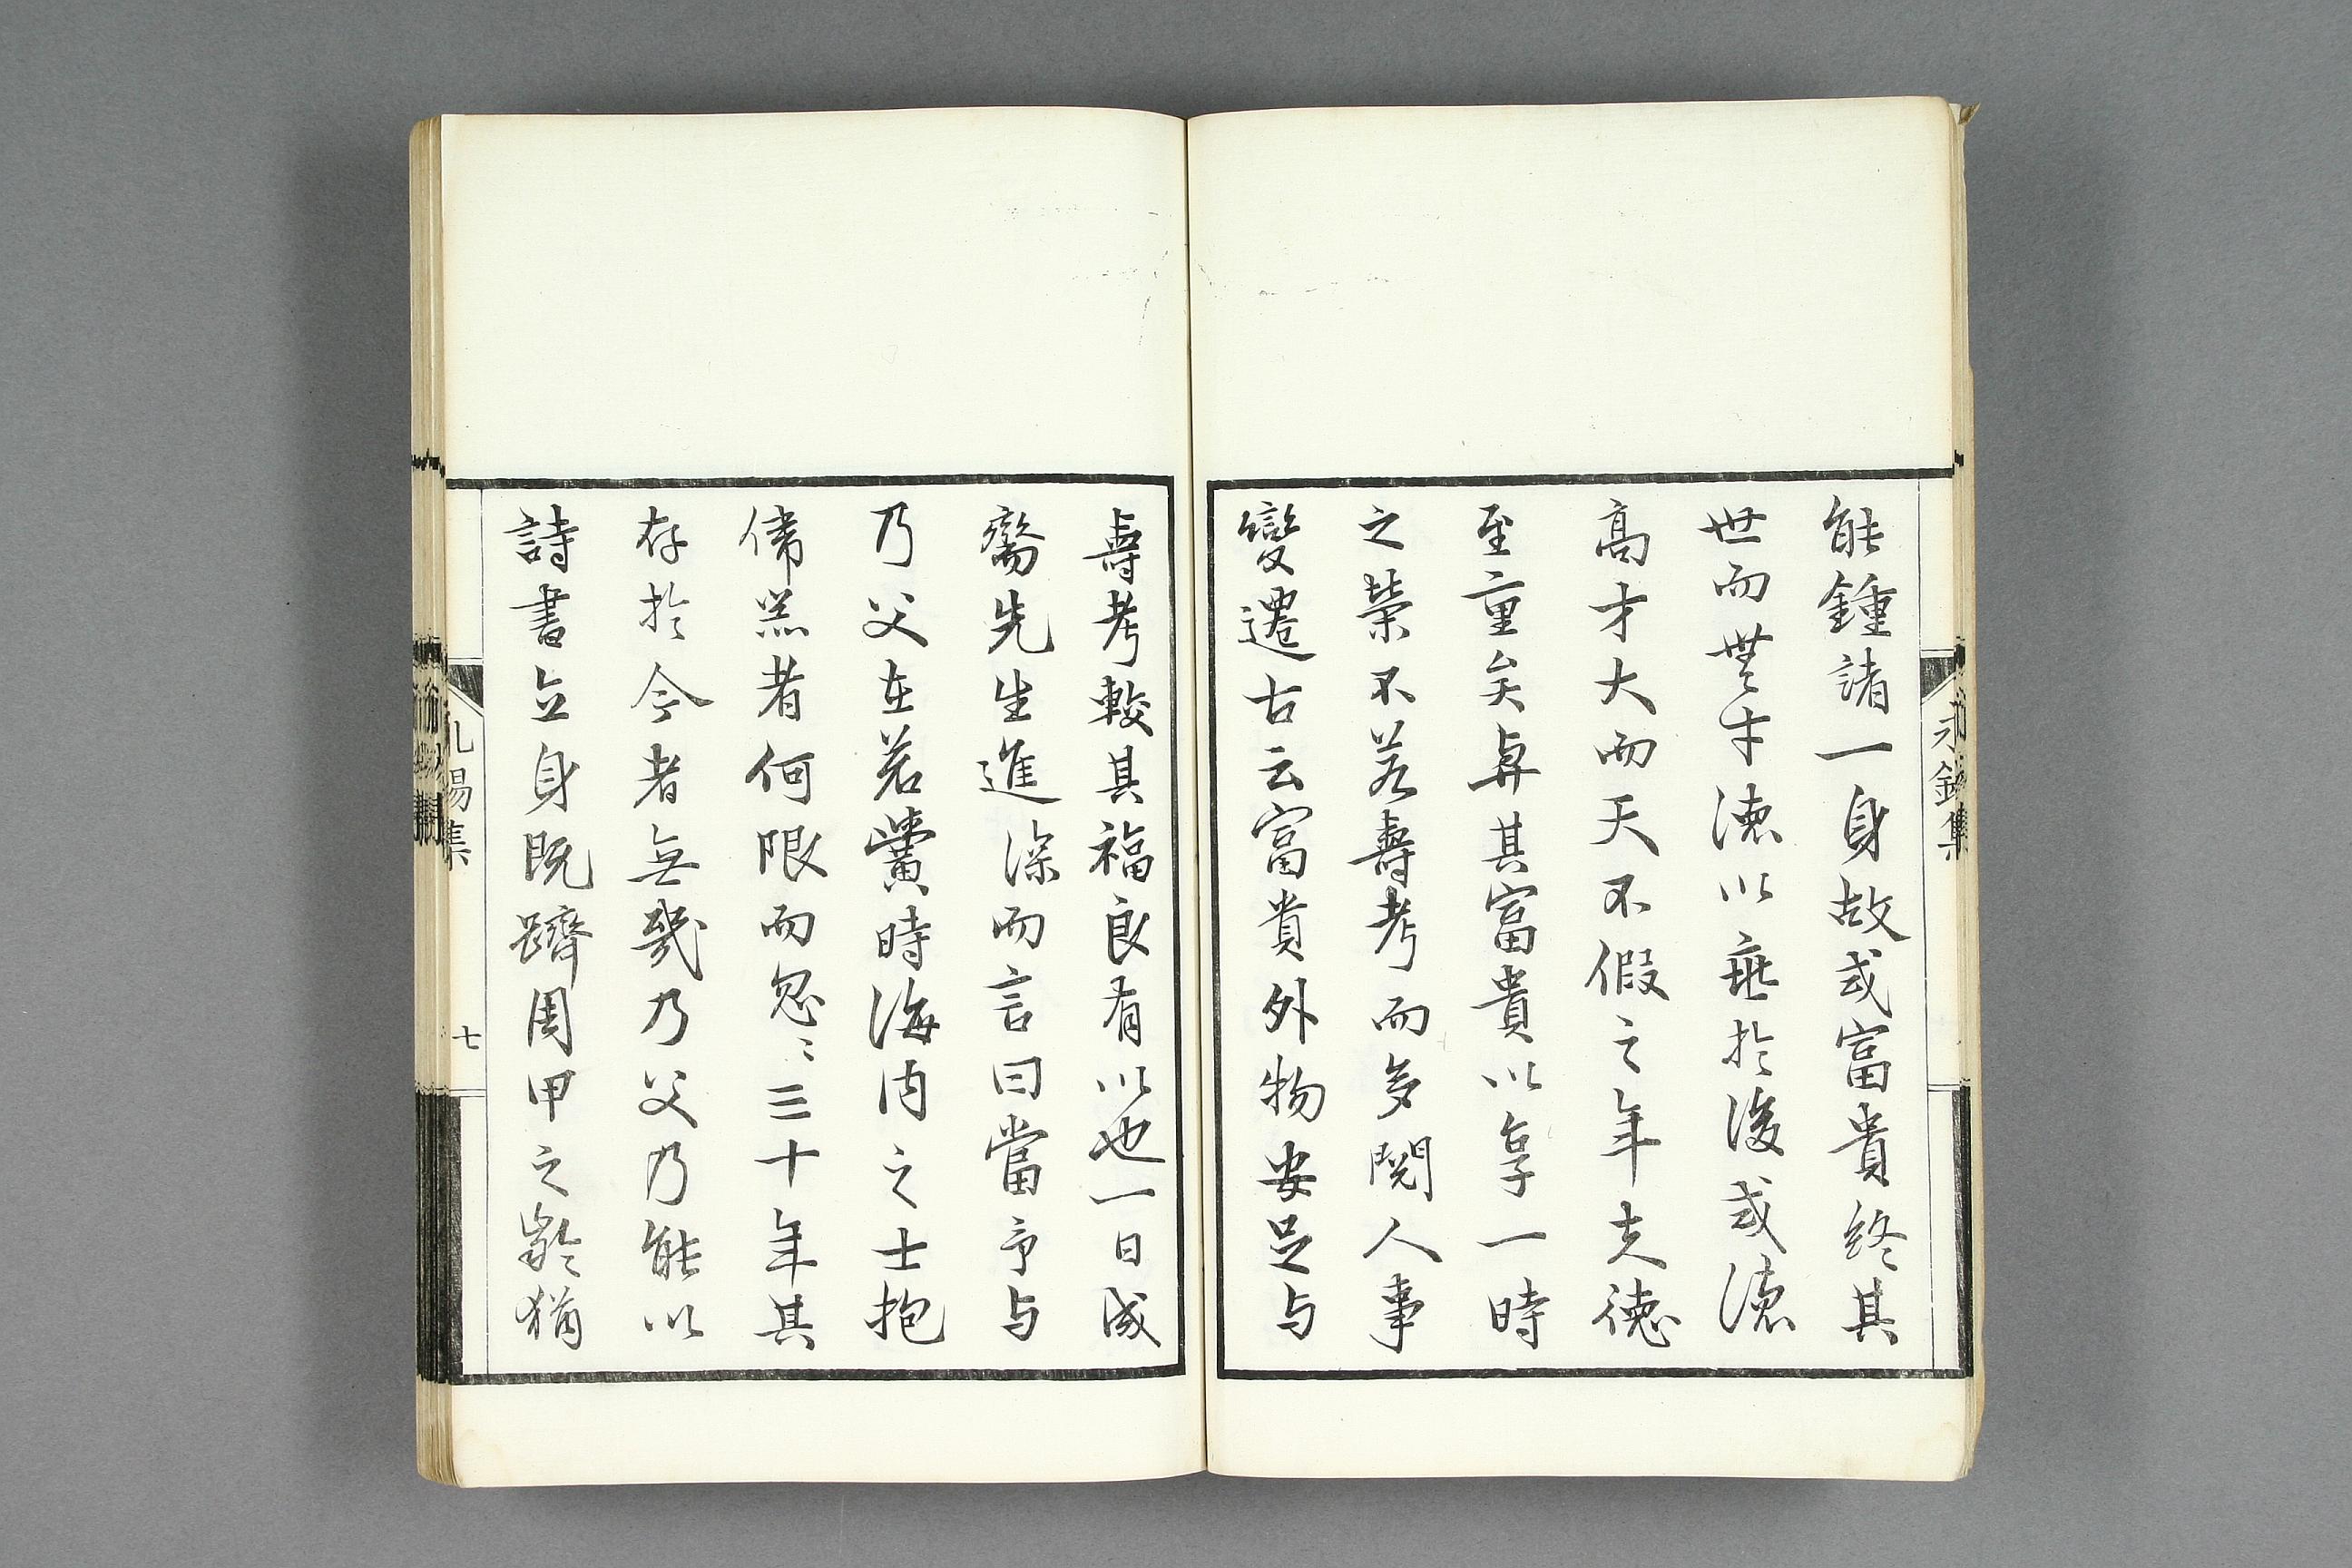 能鍾諸一身故或富貴終其
世而無才德以垂於後或德
高才大而天不假之年夫德
至重矣與其富貴以享一時
之榮不若壽考而多閱人事
變遷古云富貴外物安足与
壽考較其福良有以也一日成
齋先生進深而言曰當予与
乃父在若黌時海内之士抱
偉器者何限而忽々三十年其
存於今者無幾乃父乃能以
詩書立身既躋周甲之齡猶
集
七